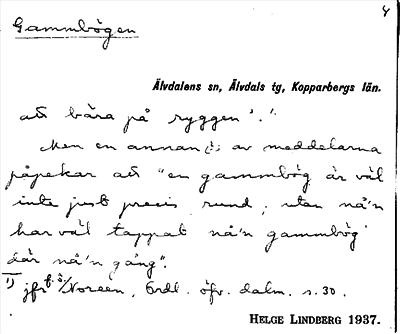 4
Gammbögen
Älvdalens sn, Älvdals tg, Kopparbergs län.
att bära på ryggen'.'
Men en annan ¹⁾ av meddelarna
påpekar att "en gammbög är väl
inte just precis rund, utan nå'n
har väl tappat nå'n gammbög
där nå'n gång".
1) jfr f. ö. Noreen, Ordl. öfv. dalm. s. 30.
HELGE LINDBERG 1937.